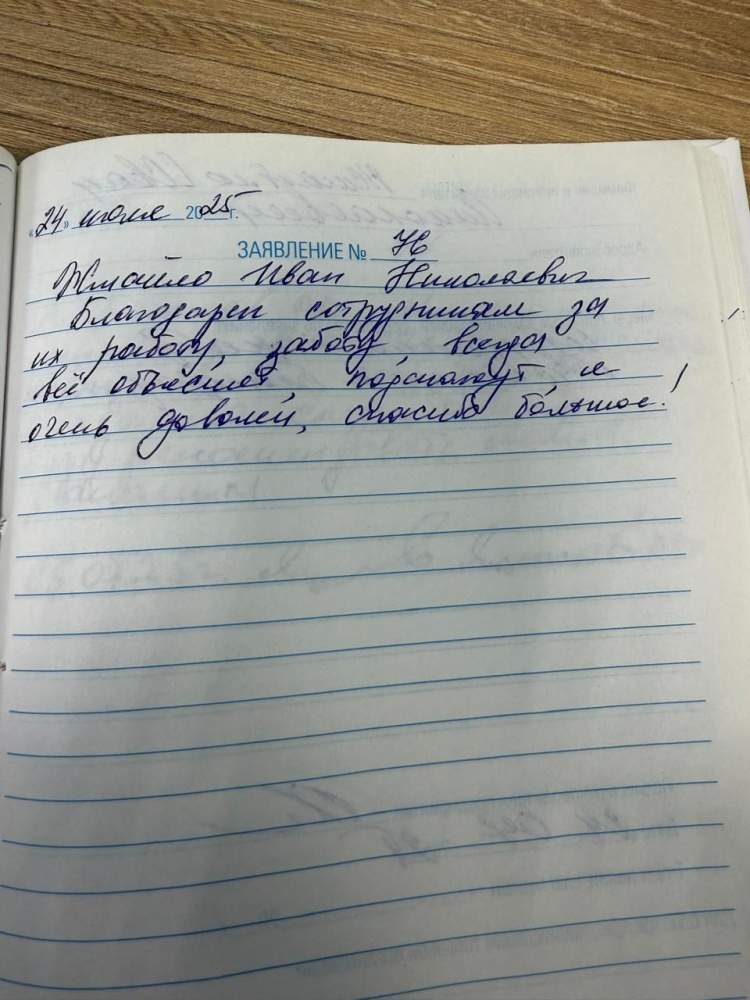 «24» июля 2025 г.
ЗАЯВЛЕНИЕ № 76
Жмайло Иван Николаевич
Благодарен сотрудникам за
их работу, заботу всегда
всё объяснят, подскажут я
очень доволен, спасибо большое!